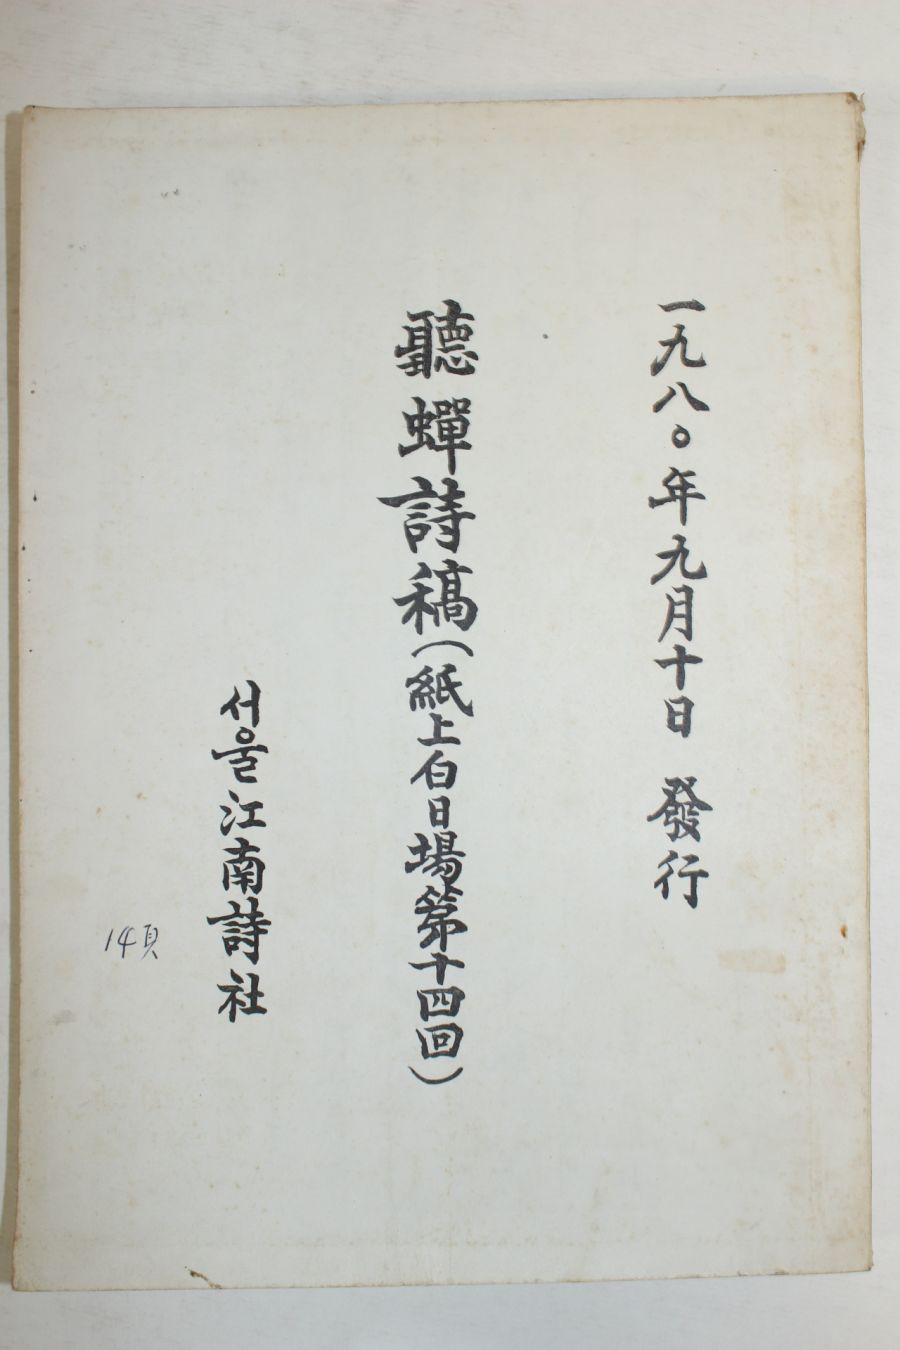 一九八〇年九月十日 發行
聽蟬詩稿(紙上白日場第十四回)
서울江南詩社
14頁